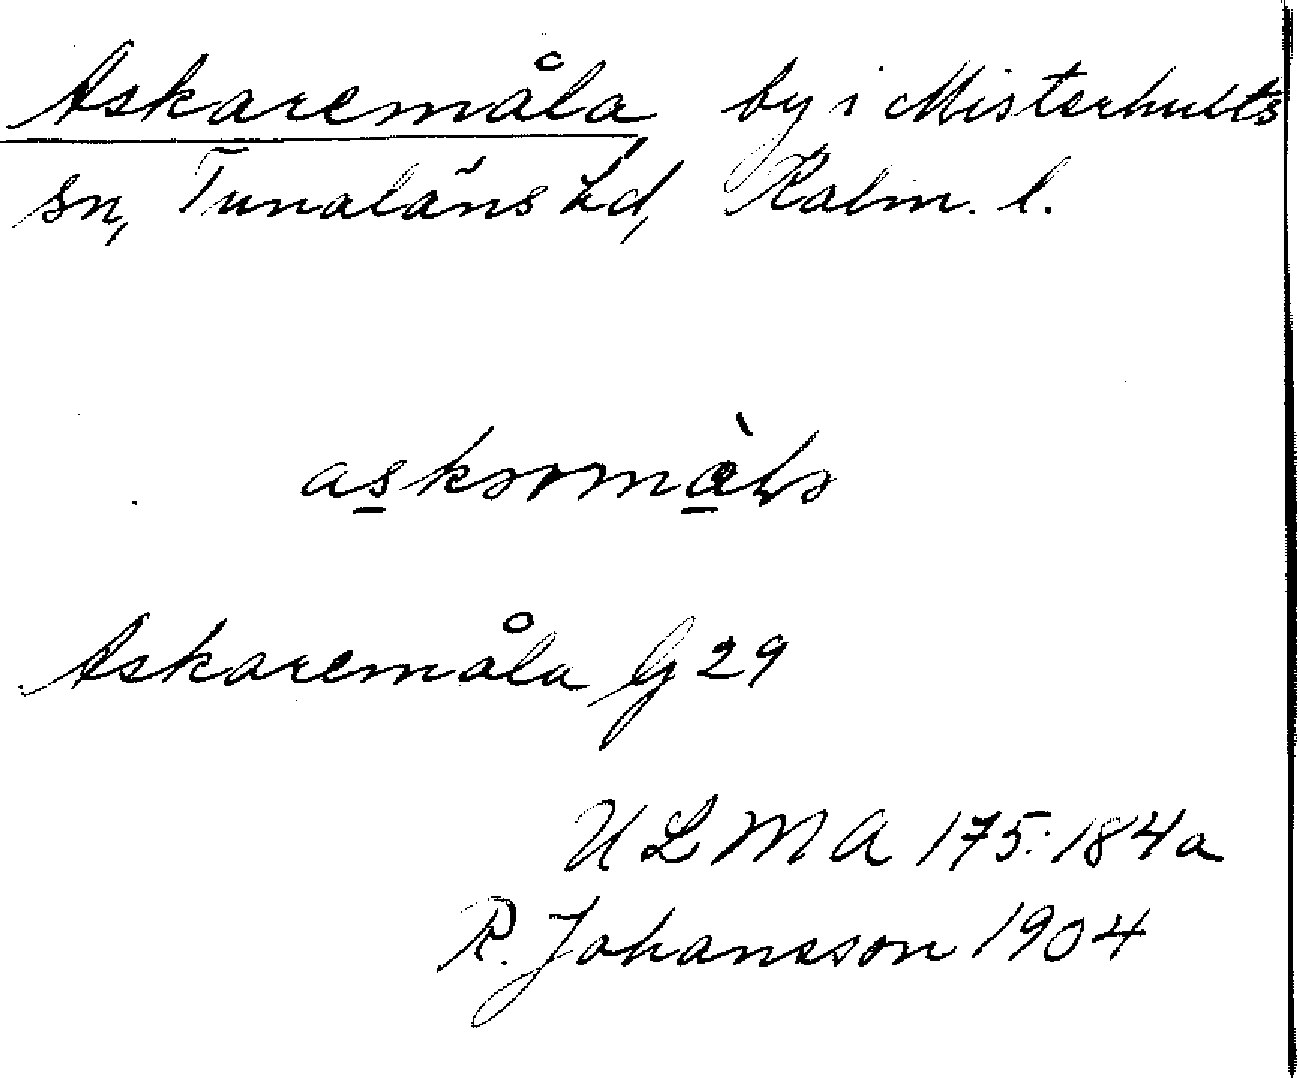 Askaremåla by i Misterhults
sn, Tunaläns hd, Kalm. l.
Askaremåla G 29
ULMA 175:184a
R. Johansson 1904